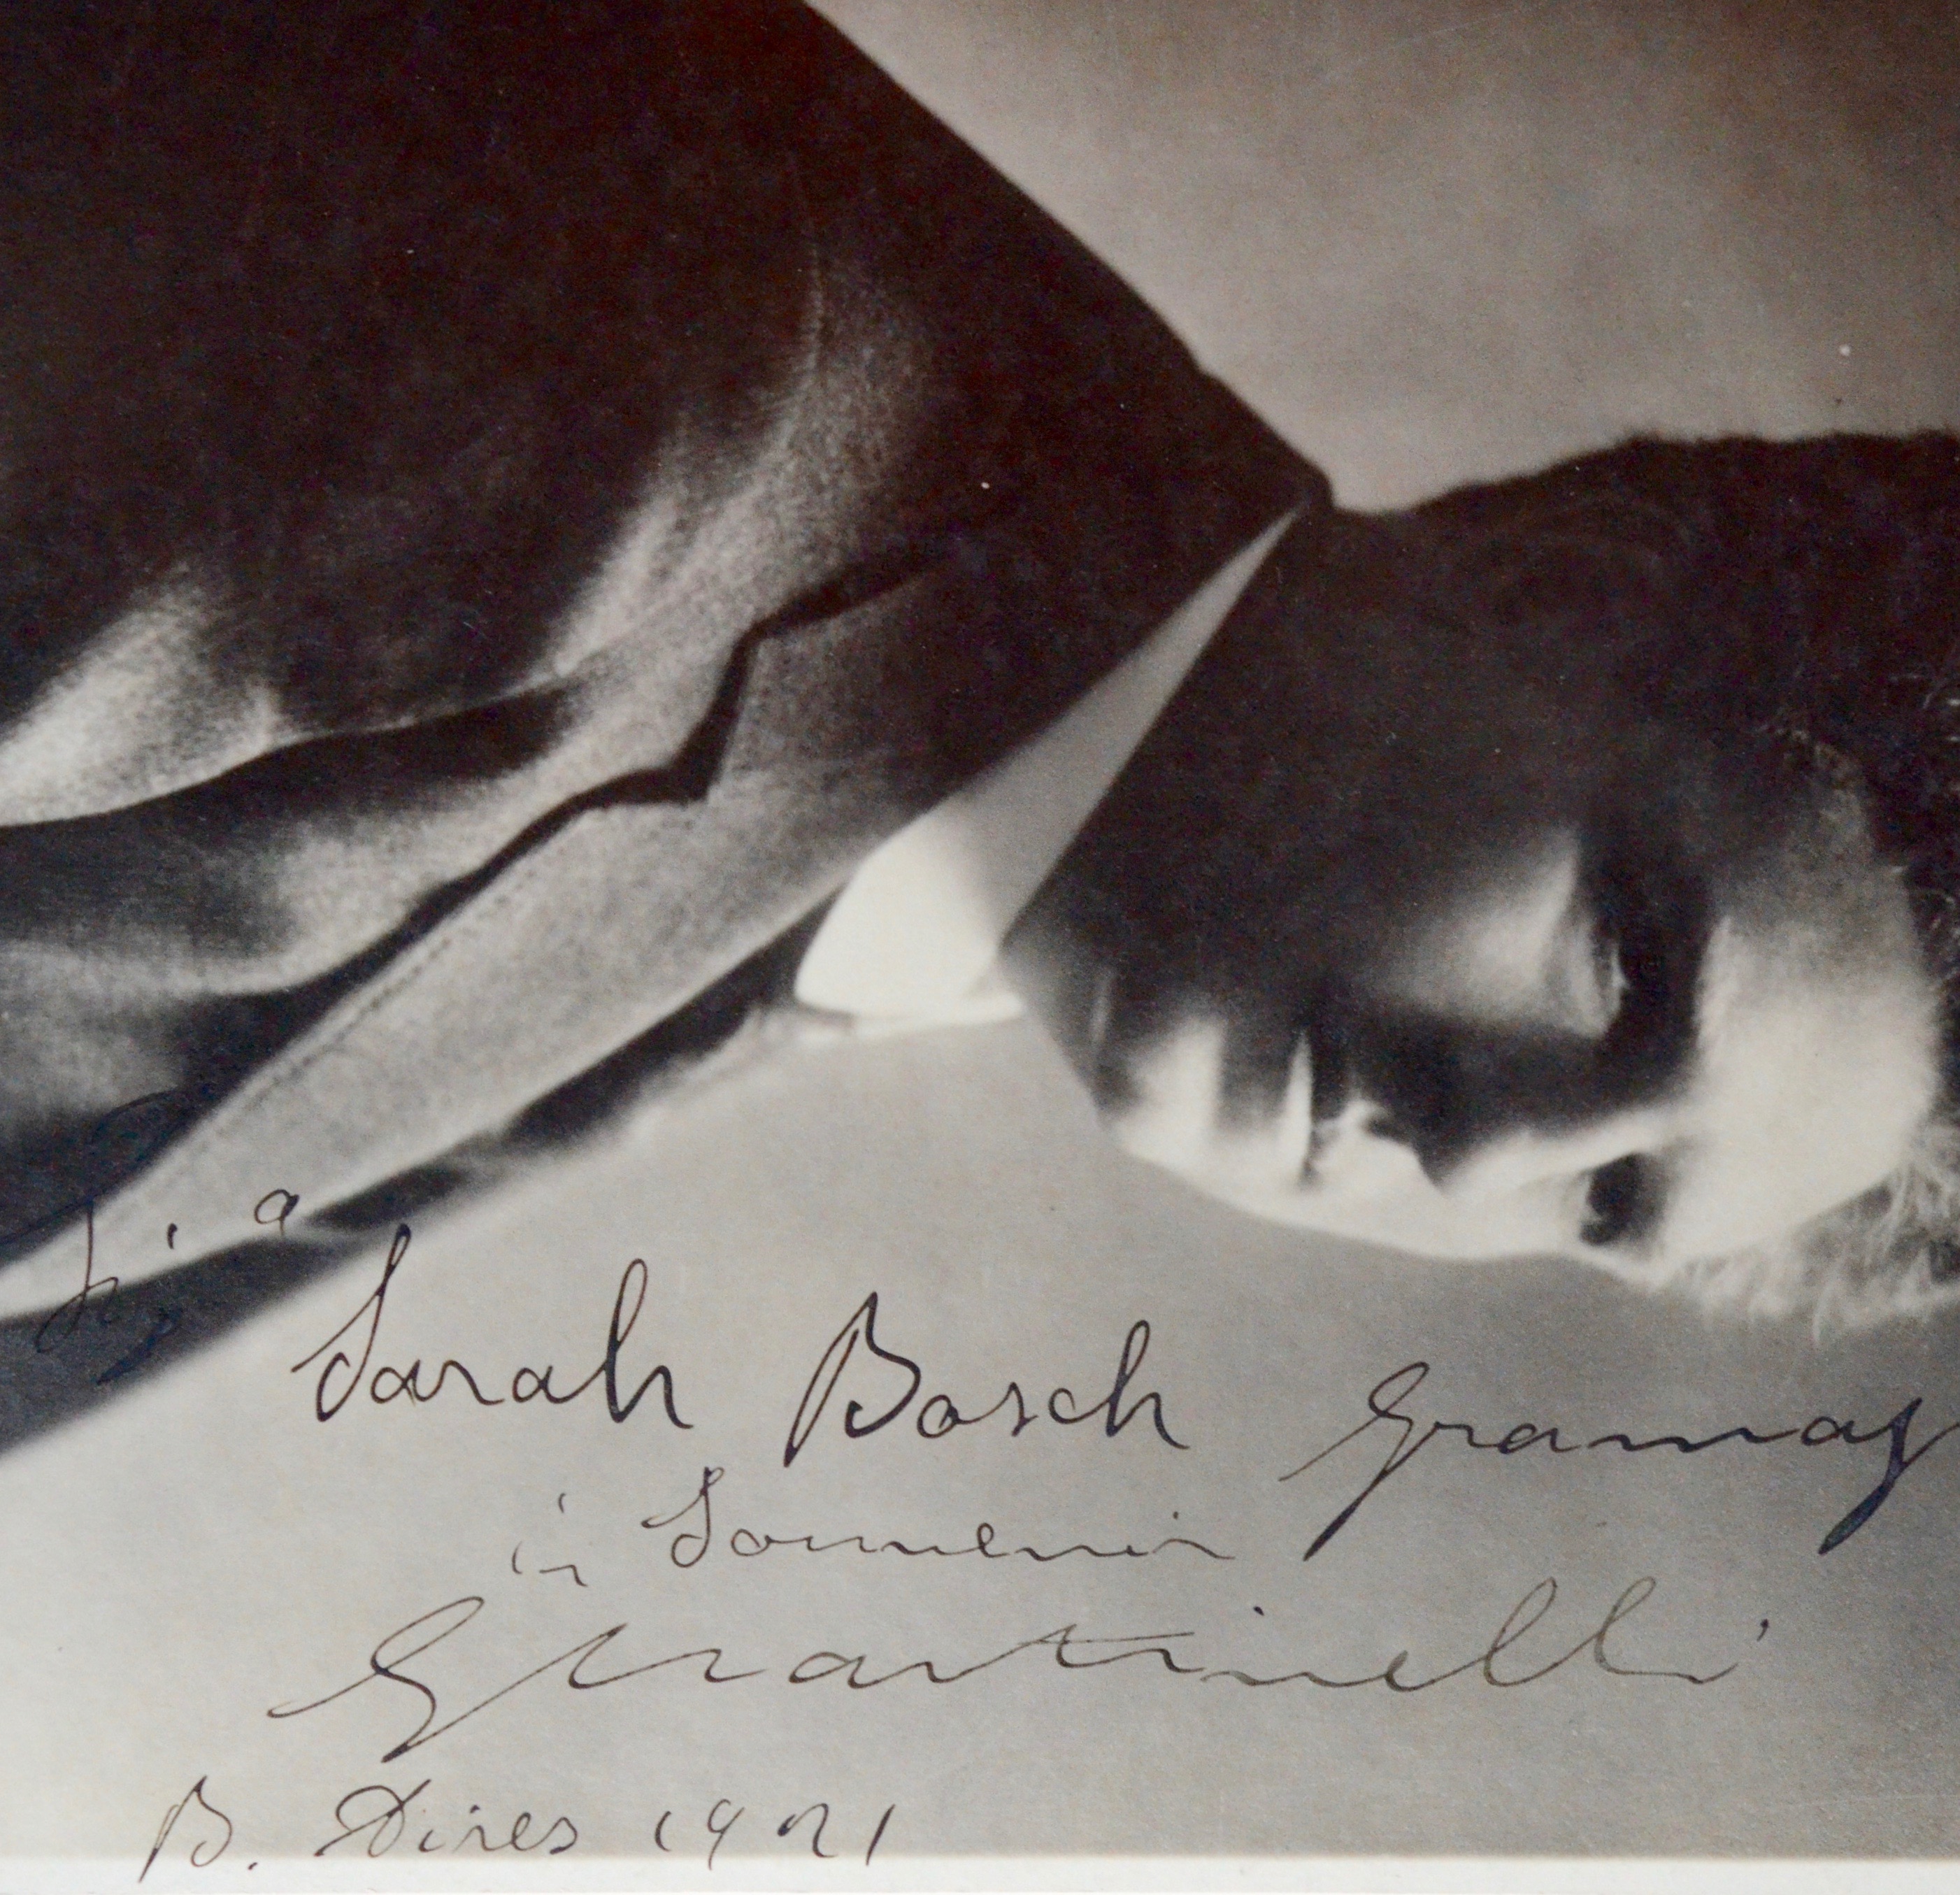 a
Sarah Bosch Gramaj
in Souvenir
GMartinelli
B. Aires 1921